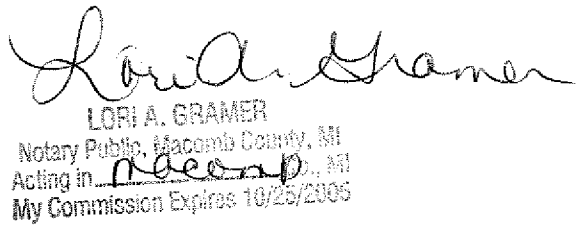 Lori A. Gramer
LORI A. GRAMER
Notary Public, Macomb County, MI
Acting in Macomb Co., MI
My Commission Expires 10/25/2006